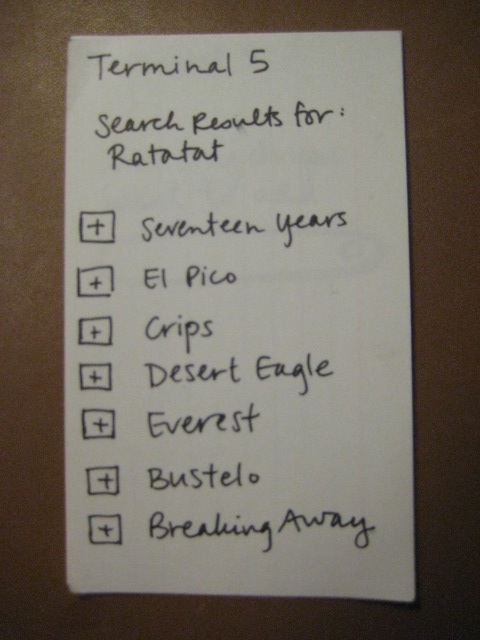 Terminal 5
Search Results for:
Ratatat
+ Seventeen Years
+ El Pico
+ Crips
+ Desert Eagle
+ Everest
+ Bustelo
+ Breaking Away